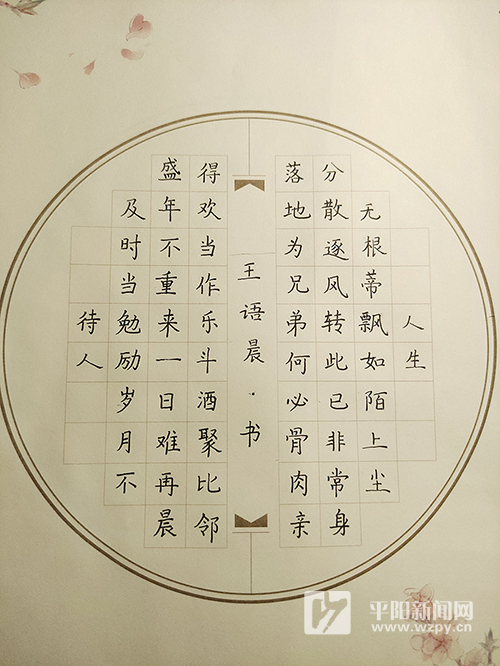 人生
无根蒂飘如陌上尘
分散逐风转此已非常身
落地为兄弟何必骨肉亲
王语晨·书
得欢当作乐斗酒聚比邻
盛年不重来一日难再晨
及时当勉励岁月不
待人
平阳新闻网
www.wzpy.cn